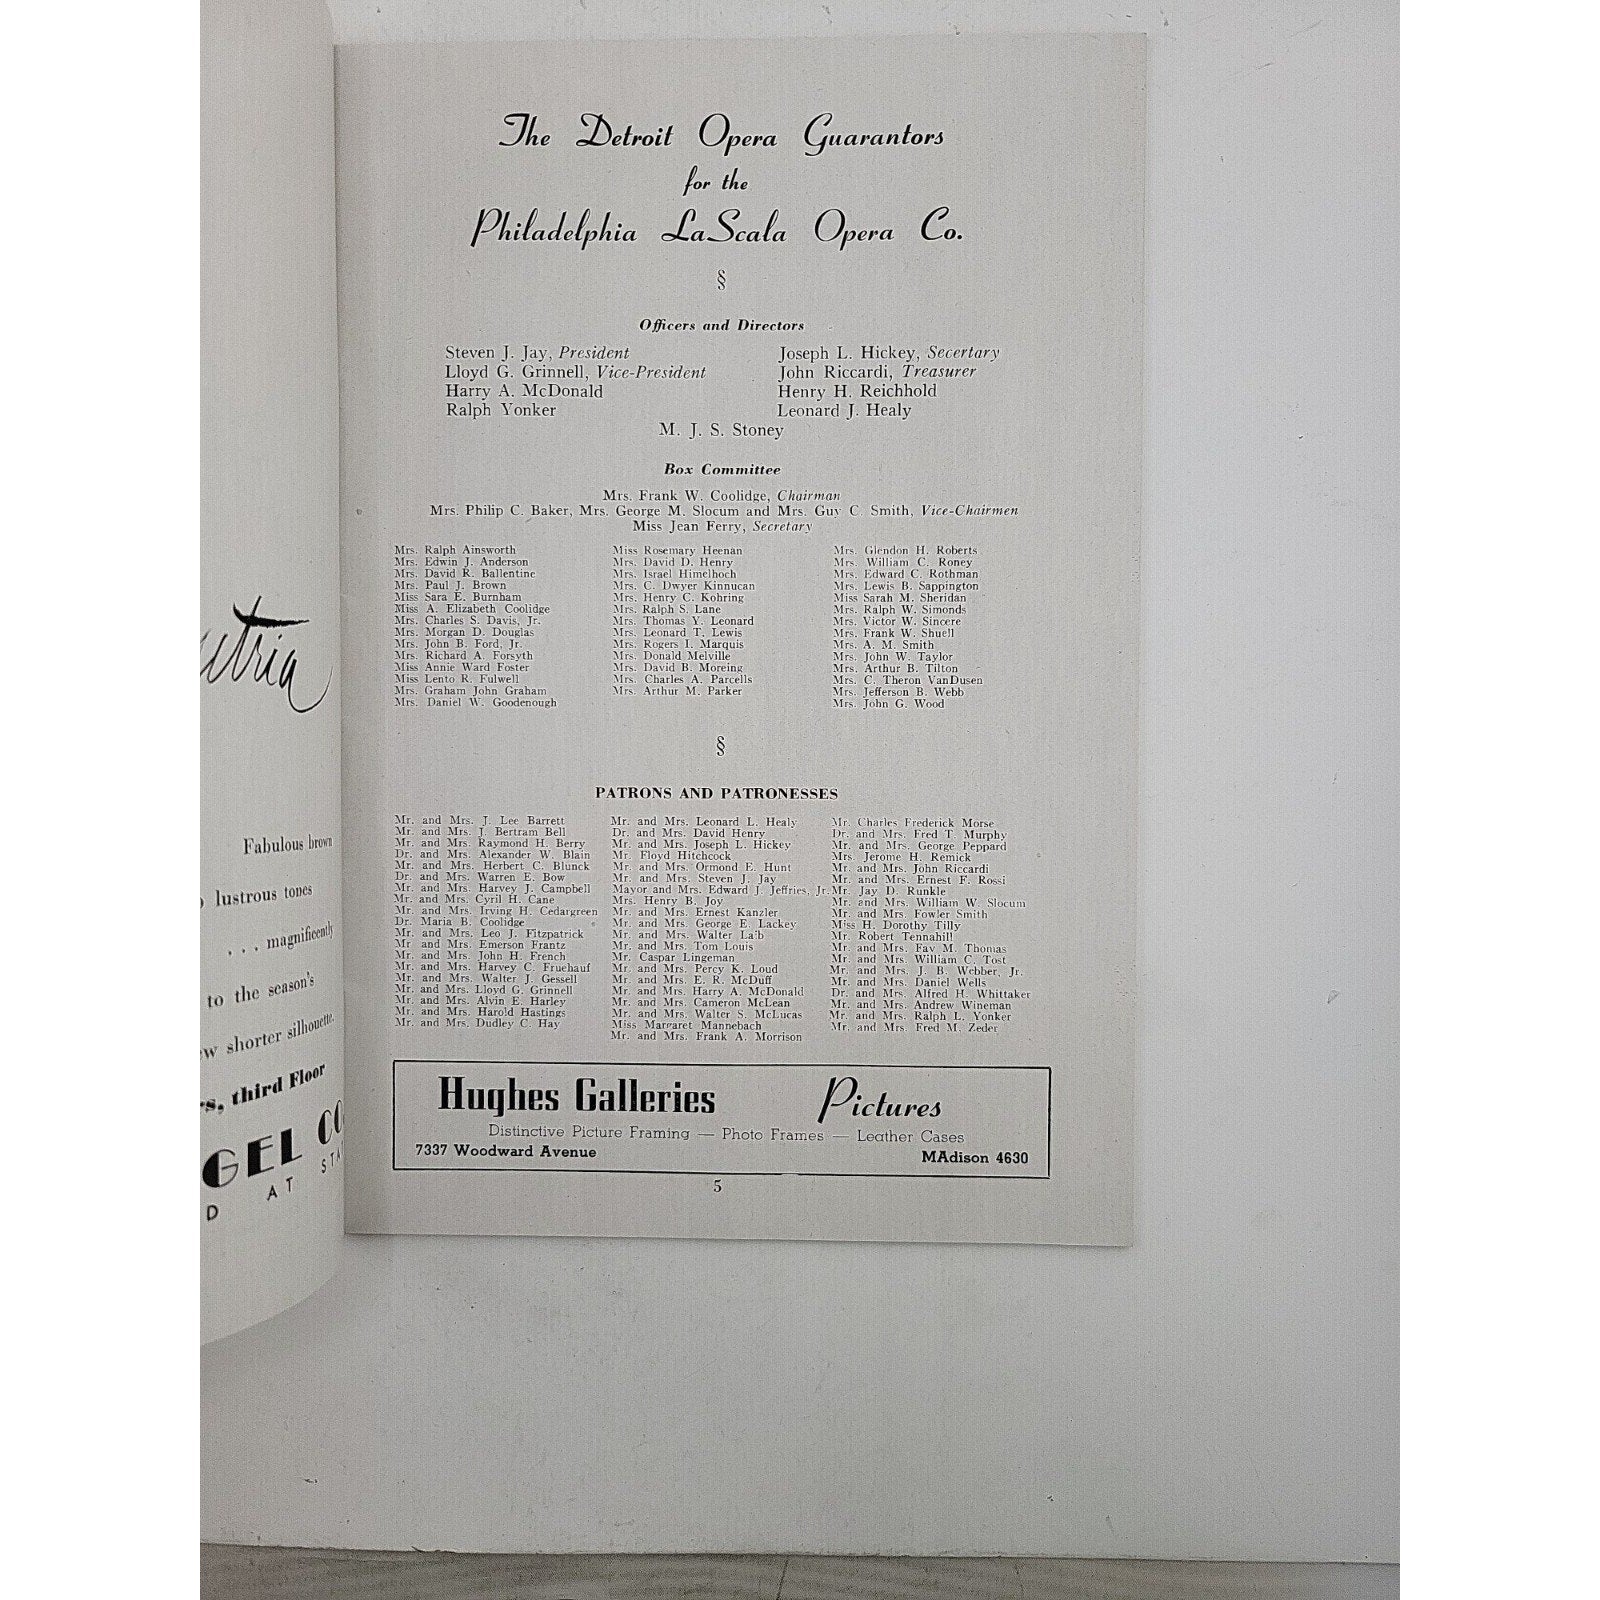 The Detroit Opera Guarantors
for the
Philadelphia LaScala Opera Co.
§
Officers and Directors
Steven J. Jay, President
Lloyd G. Grinnell, Vice-President
Harry A. McDonald
Ralph Yonker
Joseph L. Hickey, Secertary
John Riccardi, Treasurer
Henry H. Reichhold
Leonard J. Healy
M. J. S. Stoney
Box Committee
Mrs. Frank W. Coolidge, Chairman
Mrs. Philip C. Baker, Mrs. George M. Slocum and Mrs. Guy C. Smith, Vice-Chairmen
Miss Jean Ferry, Secretary
Mrs. Ralph Ainsworth
Mrs. Edwin J. Anderson
Mrs. David R. Ballentine
Mrs. Paul J. Brown
Miss Sara E. Burnham
Miss A. Elizabeth Coolidge
Mrs. Charles S. Davis, Jr.
Mrs. Morgan D. Douglas
Mrs. John B. Ford, Jr.
Mrs. Richard A. Forsyth
Miss Annie Ward Foster
Miss Lento R. Fulwell
Mrs. Graham John Graham
Mrs. Daniel W. Goodenough
Miss Rosemary Heenan
Mrs. David D. Henry
Mrs. Israel Himelhoch
Mrs. C. Dwyer Kinnucan
Mrs. Henry C. Kohring
Mrs. Ralph S. Lane
Mrs. Thomas Y. Leonard
Mrs. Leonard T. Lewis
Mrs. Rogers I. Marquis
Mrs. Donald Melville
Mrs. David B. Moreing
Mrs. Charles A. Parcells
Mrs. Arthur M. Parker
Mrs. Glendon H. Roberts
Mrs. William C. Roney
Mrs. Edward C. Rothman
Mrs. Lewis B. Sappington
Miss Sarah M. Sheridan
Mrs. Ralph W. Simonds
Mrs. Victor W. Sincere
Mrs. Frank W. Shuell
Mrs. A. M. Smith
Mrs. John W. Taylor
Mrs. Arthur B. Tilton
Mrs. C. Theron VanDusen
Mrs. Jefferson B. Webb
Mrs. John G. Wood
§
PATRONS AND PATRONESSES
Mr. and Mrs. J. Lee Barrett
Mr. and Mrs. J. Bertram Bell
Mr. and Mrs. Raymond H. Berry
Dr. and Mrs. Alexander W. Blain
Mr. and Mrs. Herbert C. Blunck
Dr. and Mrs. Warren E. Bow
Mr. and Mrs. Harvey J. Campbell
Mr. and Mrs. Cyril H. Cane
Mr. and Mrs. Irving H. Cedargreen
Dr. Maria B. Coolidge
Mr. and Mrs. Leo J. Fitzpatrick
Mr. and Mrs. Emerson Frantz
Mr. and Mrs. John H. French
Mr. and Mrs. Harvey C. Fruehauf
Mr. and Mrs. Walter J. Gessell
Mr. and Mrs. Lloyd G. Grinnell
Mr. and Mrs. Alvin E. Harley
Mr. and Mrs. Harold Hastings
Mr. and Mrs. Dudley C. Hay
Mr. and Mrs. Leonard L. Healy
Dr. and Mrs. David Henry
Mr. and Mrs. Joseph L. Hickey
Mr. Floyd Hitchcock
Mr. and Mrs. Ormond E. Hunt
Mr. and Mrs. Steven J. Jay
Mayor and Mrs. Edward J. Jeffries, Jr.
Mrs. Henry B. Joy
Mr. and Mrs. Ernest Kanzler
Mr. and Mrs. George E. Lackey
Mr. and Mrs. Walter Laib
Mr. and Mrs. Tom Louis
Mr. Caspar Lingeman
Mr. and Mrs. Percy K. Loud
Mr. and Mrs. E. R. McDuff
Mr. and Mrs. Harry A. McDonald
Mr. and Mrs. Cameron McLean
Mr. and Mrs. Walter S. McLucas
Miss Margaret Mannebach
Mr. and Mrs. Frank A. Morrison
Mr. Charles Frederick Morse
Dr. and Mrs. Fred T. Murphy
Mr. and Mrs. George Peppard
Mrs. Jerome H. Remick
Mr. and Mrs. John Riccardi
Mr. and Mrs. Ernest F. Rossi
Mr. Jay D. Runkle
Mr. and Mrs. William W. Slocum
Mr. and Mrs. Fowler Smith
Miss H. Dorothy Tilly
Mr. Robert Tennahill
Mr. and Mrs. Fay M. Thomas
Mr. and Mrs. William C. Tost
Mr. and Mrs. J. B. Webber, Jr.
Mr. and Mrs. Daniel Wells
Dr. and Mrs. Alfred H. Whittaker
Mr. and Mrs. Andrew Wineman
Mr. and Mrs. Ralph L. Yonker
Mr. and Mrs. Fred M. Zeder
Hughes Galleries Pictures
Distinctive Picture Framing — Photo Frames — Leather Cases
7337 Woodward Avenue MAdison 4630
5
Fabulous brown
lustrous tones
. . . magnificently
to the season's
shorter silhouette.
third Floor
GEL CO
D AT STA